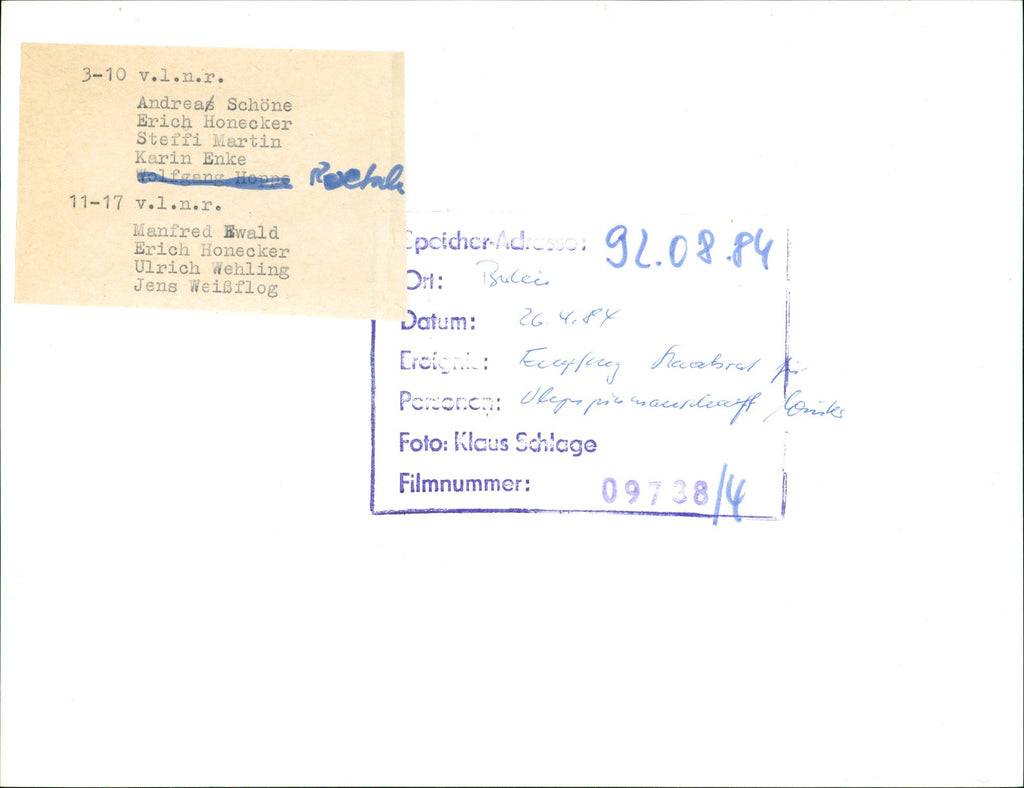 3-10 v.l.n.r.
Andreas Schöne
Erich Honecker
Steffi Martin
Karin Enke
Wolfgang Hoppe
11-17 v.l.n.r.
Manfred Ewald
Erich Honecker
Ulrich Wehling
Jens Weißflog
Speicher-Adresse: 92.08.84
Ort: Berlin
Datum: 26.4.84
Ereignis: Empfang Staatsrat für
Personen: Olympiamannschaft
Foto: Klaus Schlage
Filmnummer: 09738/4